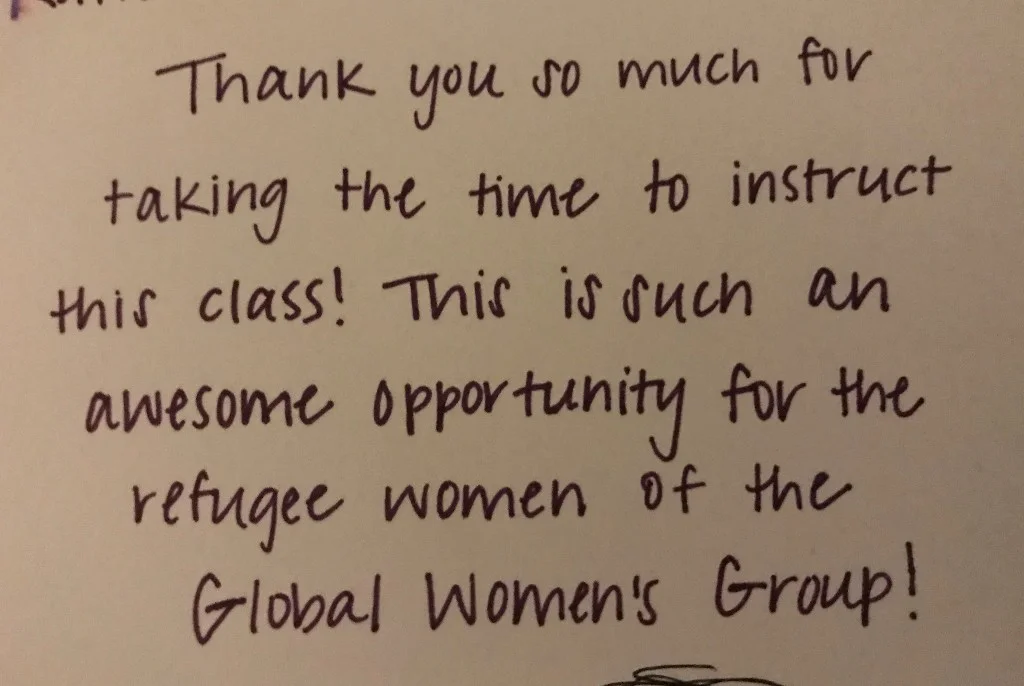 Thank you so much for
taking the time to instruct
this class! This is such an
awesome opportunity for the
refugee women of the
Global Women's Group!